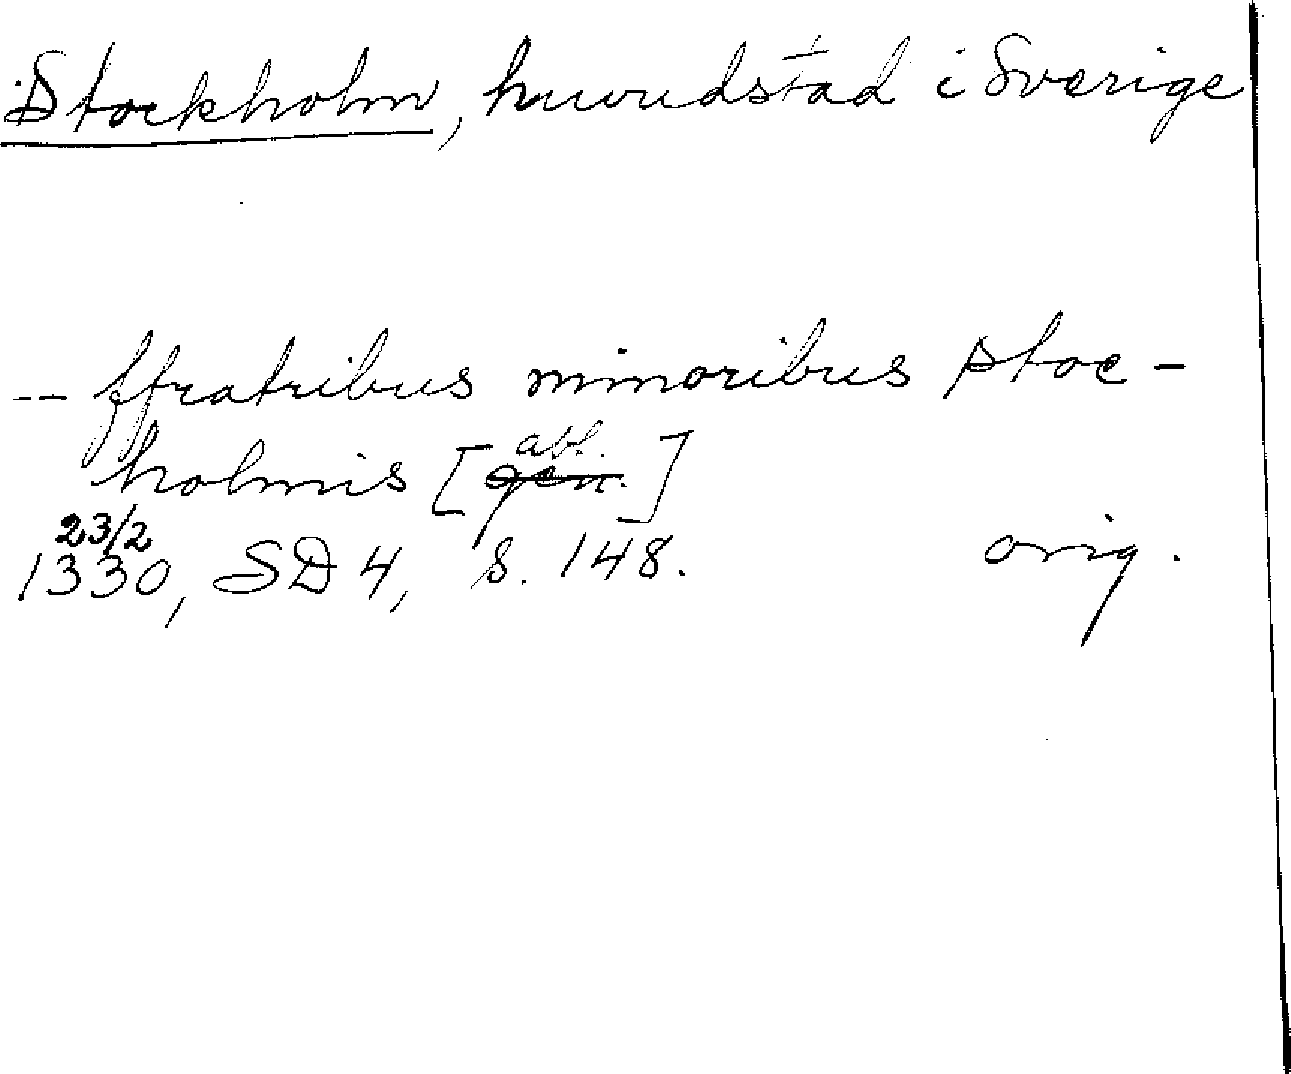 Stockholm, huvudstad i Sverige
-- ffratribus minoribus stoc-
holmis [gen. abl.]
23/2
1330, SD 4, s. 148. orig.